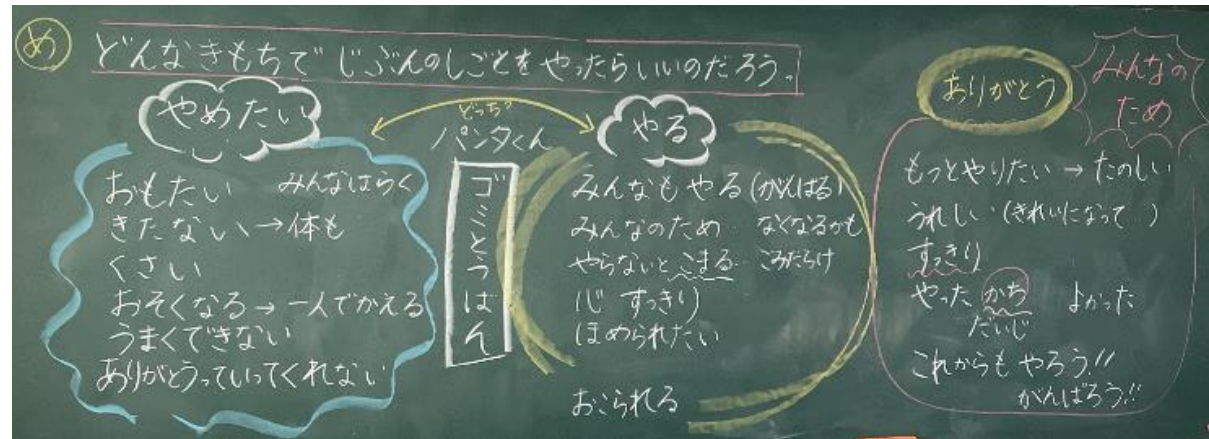 め
どんなきもちで じぶんのしごとを やったらいいのだろう。
やめたい
おもたい みんなはらく
きたない→体も
くさい
おそくなる→一人でかえる
うまくできない
ありがとうっていってくれない
どっち?
パンタくん
ゴミとうばん
やる
みんなもやる(がんばる)
みんなのため なくなるかも
やらないとこまる‥ごみだらけ
すっきり)
ほめられたい
おこられる
ありがとう
みんなの
ため
もっとやりたい→たのしい
うれしい(きれいになって‥)
すっきり
やった かち よかった
だいじ
これからも やろう!!
がんばろう!!